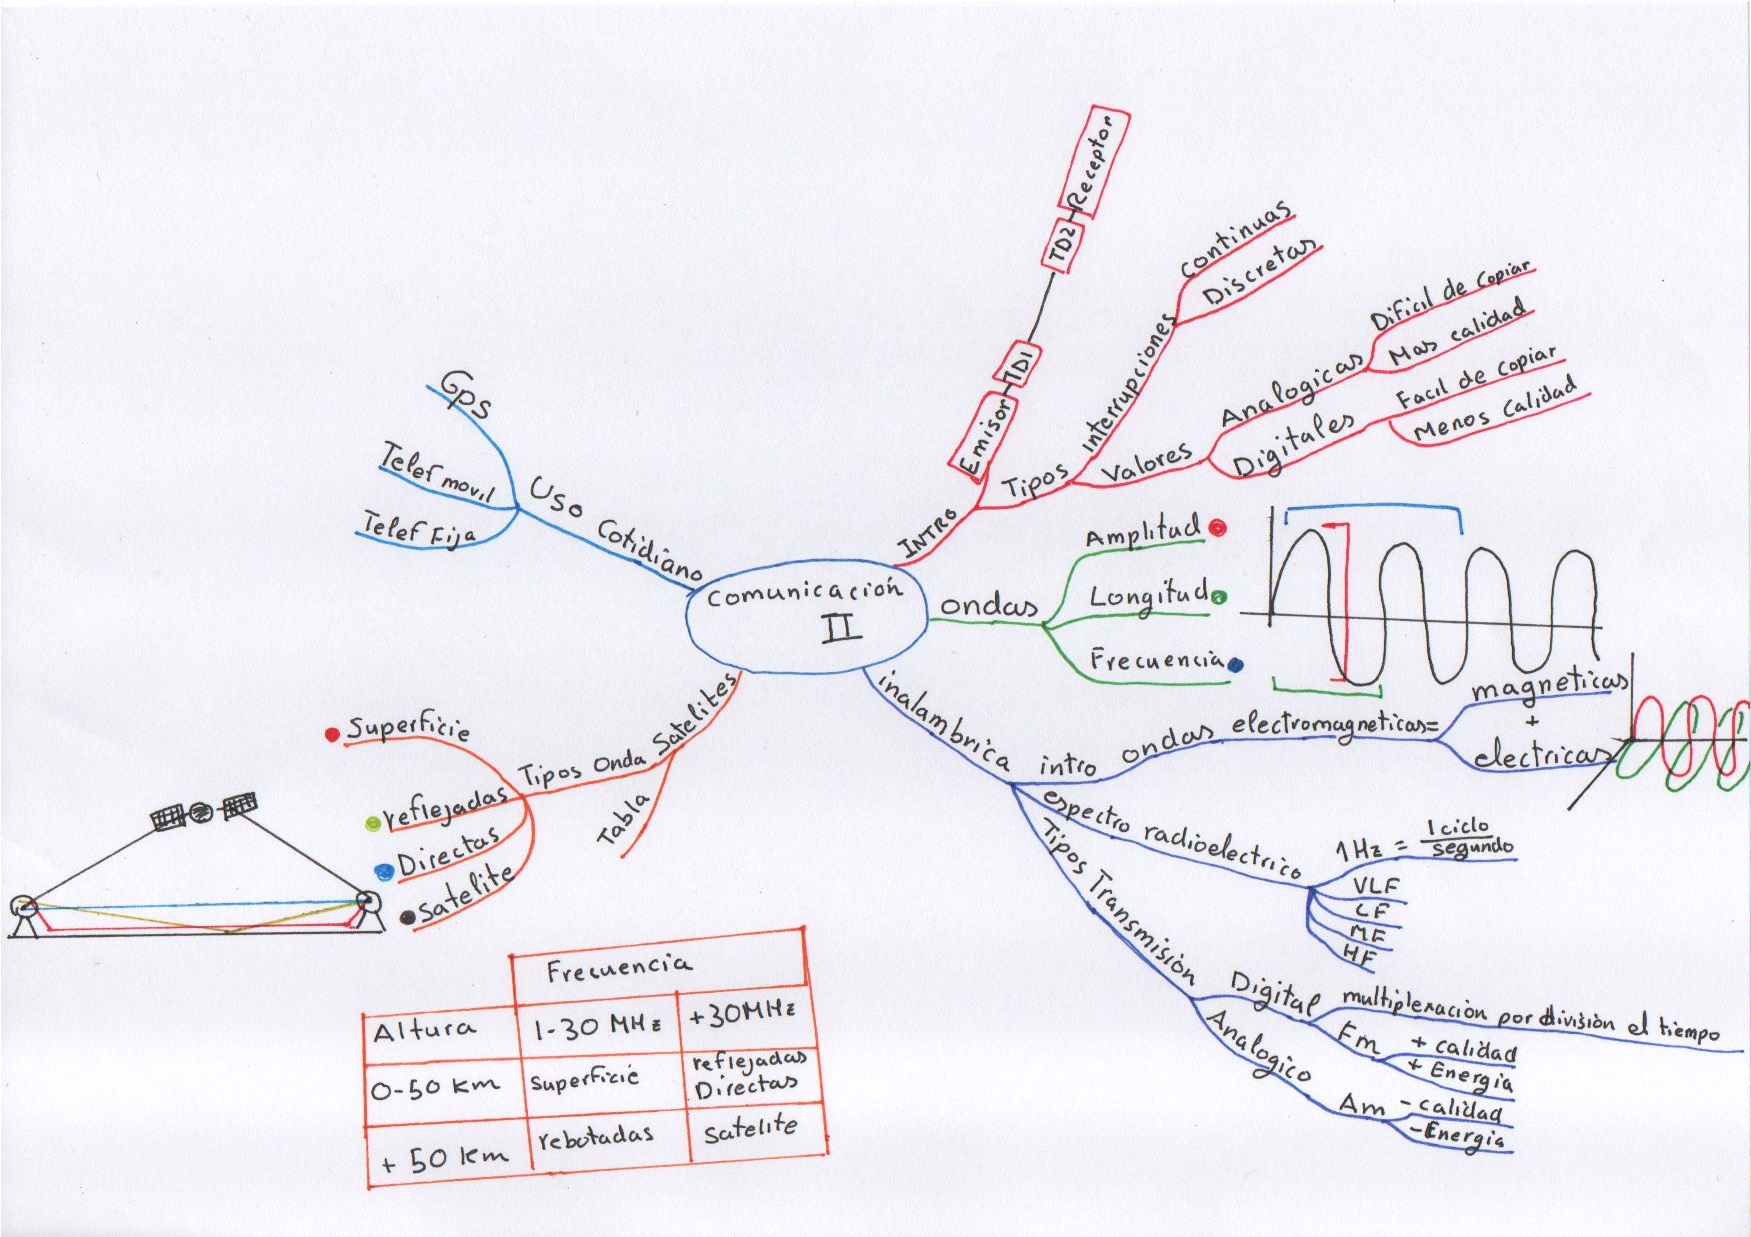 Comunicación
II
INTRO
Emisor
TD1
TD2
Receptor
Tipos
Interrupciones
Continuas
Discretas
Valores
Analogicas
Dificil de copiar
Mas calidad
Digitales
Facil de copiar
Menos Calidad
ondas
Amplitud
Longitud
Frecuencia
inalambrica
intro
ondas electromagneticas=
magneticas
+
electricas
espectro radioelectrico
1Hz = 1 ciclo
segundo
VLF
LF
MF
HF
Tipos Transmisión
Digital
multiplexación por división el tiempo
Fm
+ calidad
+ Energia
Analogico
Am
- calidad
- Energia
Satelites
Tabla
Tipos Onda
Superficie
reflejadas
Directas
Satelite
Frecuencia
Altura
1-30 MHz
+30MHz
0-50 km
Superficie
reflejadas
Directas
+ 50 km
rebotadas
Satelite
Uso Cotidiano
Gps
Telef movil
Telef Fija